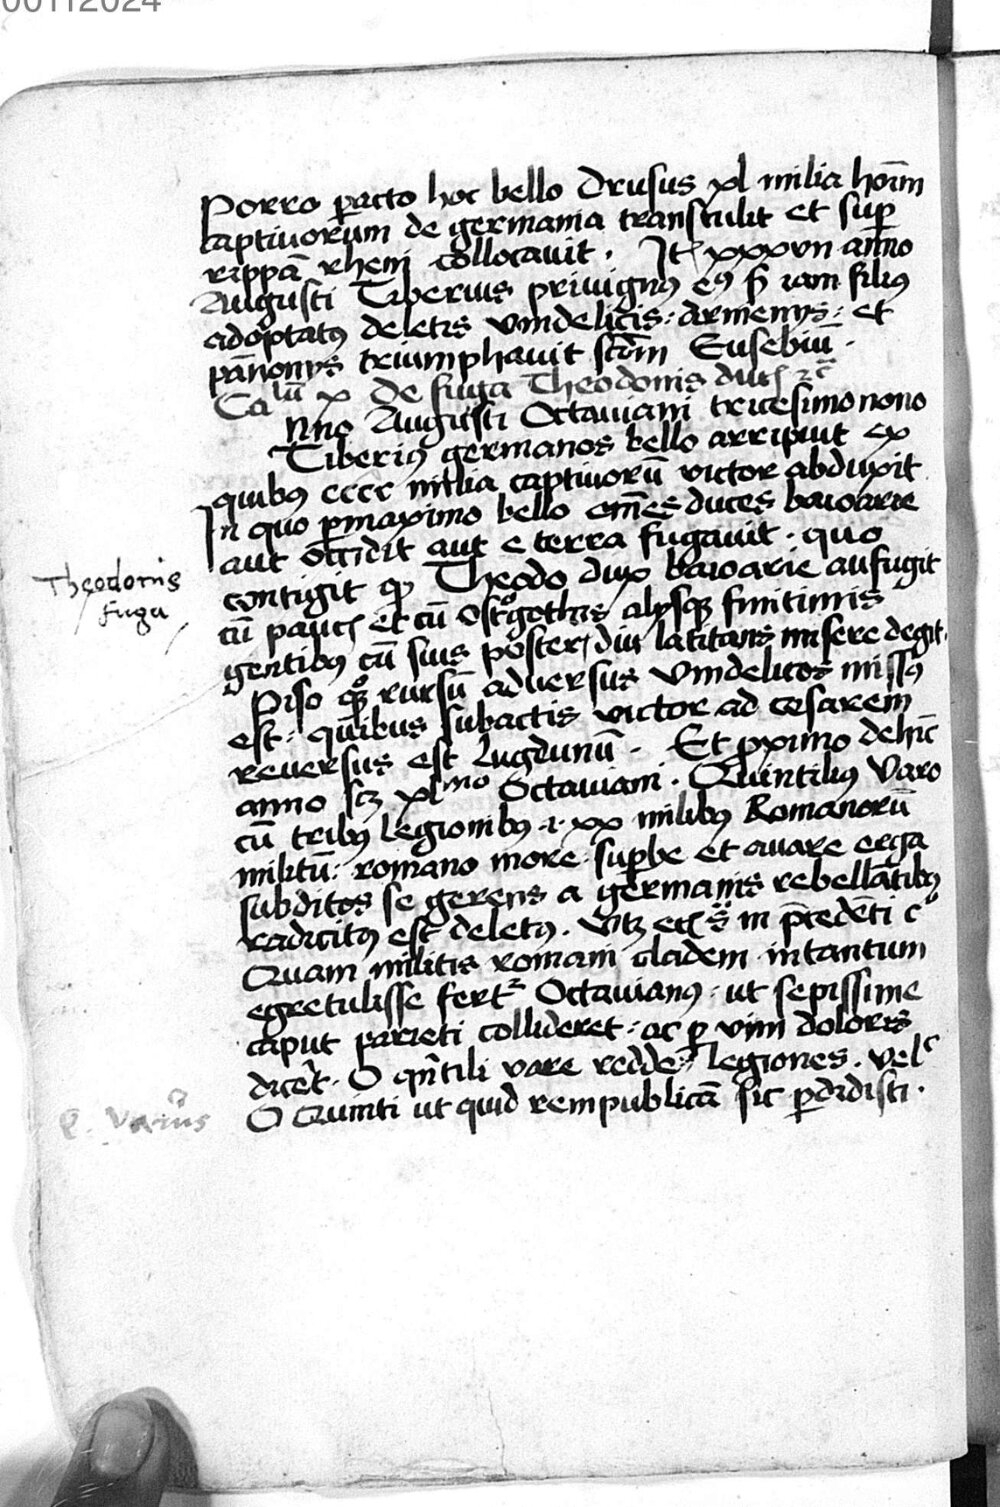 00112024
Porro pacto hoc bello Drusus xl milia hoīm
captiuorum de germania transtulit et sup
rippā rheni collocauit. Itē xxxvii anno
Augusti Tiberius priuignꝰ eiꝰ et iam filius
adoptatꝰ deletis vindelicis: Armenijs: et
pānonijs triumphauit scdm Eusebiū.
Calm x De fuga Theodonis ducis zc
nno Augusti Octauiani tricesimo nono
Tiberiꝰ germanos bello arripuit ex
quibꝰ cccc milia captiuorū victor abduxit
In quo pmaximo bello om̄es duces baioarie
aut occidit aut e terra fugauit. quo
contigit qꝫ Theodo dux baioarie aufugit
Theodonis
fuga
cū paucis et cū ostgothis alpsqꝫ finitimis
gentibꝰ cū suis posteris diu latitans misere degit.
Piso qꝫ rursū aduersus vindelicos missꝰ
est: quibus subactis victor ad cesarem
reuersus est Lugdunū. Et pximo dehīc
anno scꝫ xlmo Octauiani. Quintiliꝰ Varo
cū tribꝰ legionibꝰ .i. xx milibꝰ Romanorū
militū: romano more supbe et auare erga
subditos se gerens a germanis rebellātibꝰ
radicitꝰ est deletꝰ. Vtꝫ etis in p̄cedēti co
Quam militis romani cladem intantum
egretulisse fertur Octauianꝰ: ut sepissime
caput parieti collideret: ac p vim doloris
dicēt. O qntili vare redde legiones. vel
O Quinti ut quid rempublicā sic pdidisti.
Q. Varus